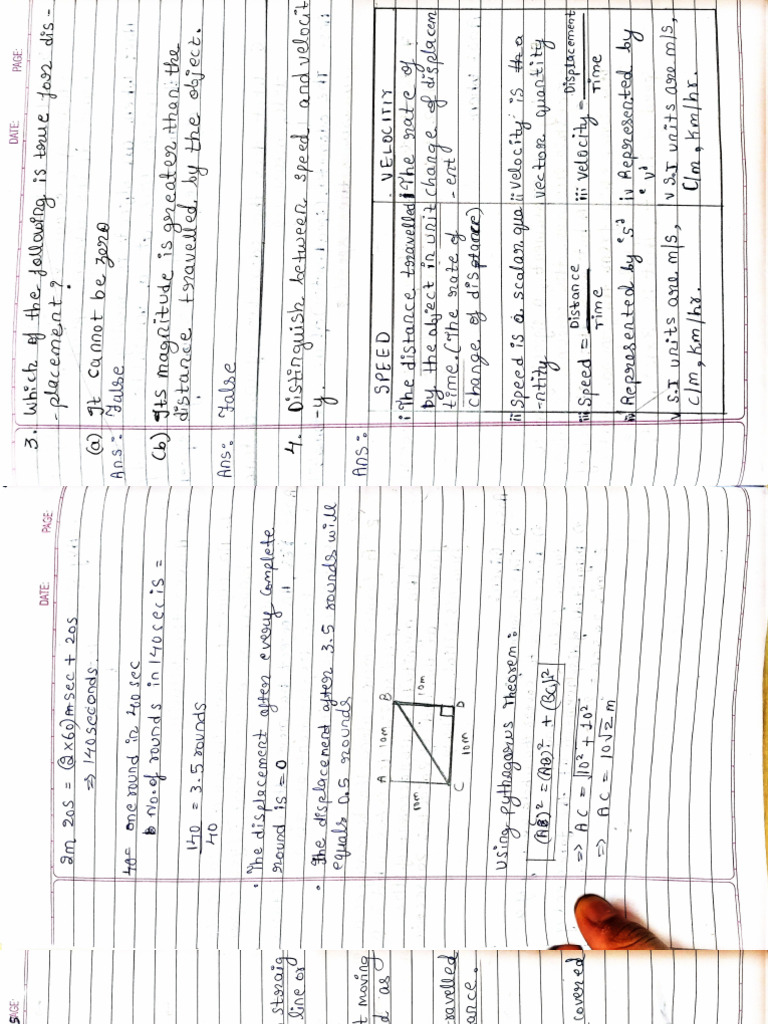 DATE: PAGE:
2m 20s = (2×60) m sec + 20s
⇒ 140 seconds.
40 = one round in 40 sec
No. of rounds in 140 sec is =
140 = 3.5 rounds
40
• The displacement after every complete
round is = 0
• The displacement after 3.5 rounds will
equals 0.5 rounds
A 10m B
10m 10m
C 10m D
Using Pythagorus Theorem:
(AB)² = (AB)² + (BC)²
⇒ AC = √10² + 10²
⇒ AC = 10√2 m
DATE: PAGE:
3. Which of the following is true for dis-
-placement?
(a) It cannot be zero
Ans: False
(b) Its magnitude is greater than the
distance travelled by the object.
Ans: False
4. Distinguish between speed and velocit
-y.
Ans:
SPEED
i The distance travelled
by the object in unit
time. (The rate of
change of distance)
ii Speed is a scalar qua
-ntity
iii Speed = Distance
Time
iv Represented by 'S'
v S.I units are m/s,
c/m, km/hr.
VELOCITIY
i The rate of
change of displacem
-ent
ii velocity is a
vector quantity
iii velocity = Displacement
Time
iv Represented by
'v'
v S.I units are m/s,
c/m, km/hr.
PAGE:
straig
line or
t moving
d as
ravelled
ance.
covered